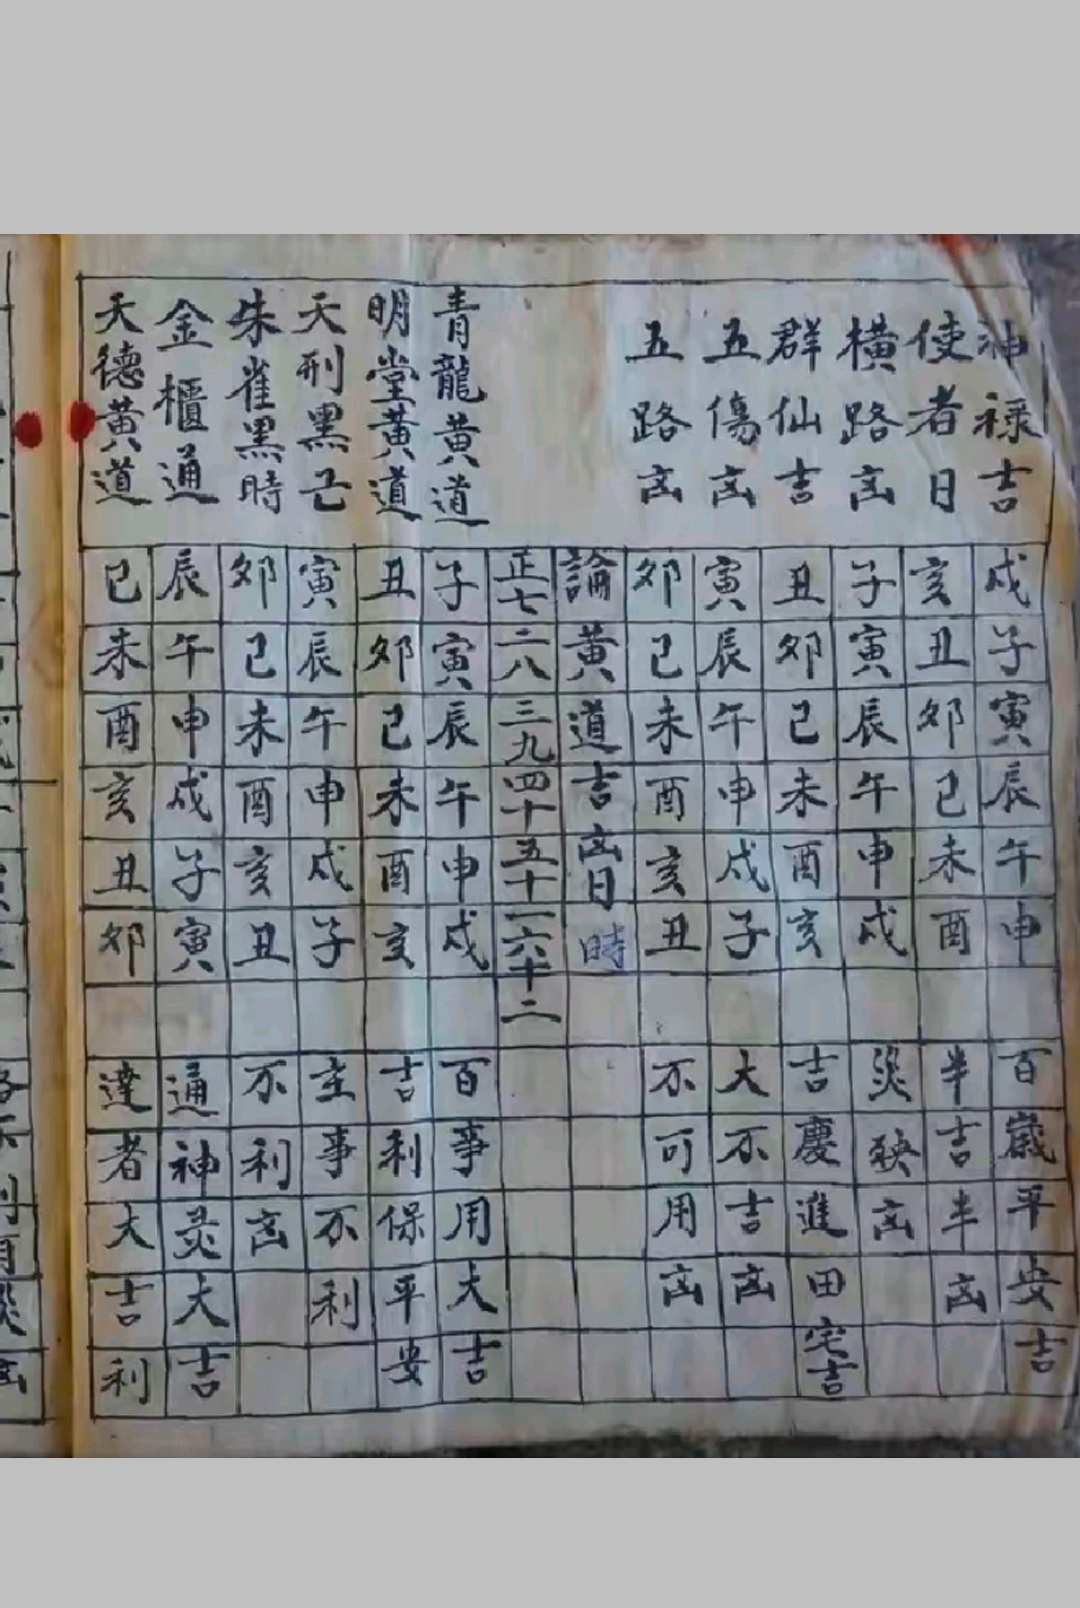 神禄吉 戌子寅辰午申 百歲平安吉
使者日 亥丑卯巳未酉 半吉半凶
横路凶 子寅辰午申戌 災殃凶
群仙吉 丑卯巳未酉亥 吉慶進田宅吉
五傷凶 寅辰午申戌子 大不吉凶
五路凶 卯巳未酉亥丑 不可用凶
論黄道吉凶日時
正七 二八 三九 四十 五十一 六十二
青龍黄道 子寅辰午申戌 百事用大吉
明堂黄道 丑卯巳未酉亥 吉利保平安
天刑黑亡 寅辰午申戌子 主事不利
朱雀黑時 卯巳未酉亥丑 不利凶
金櫃通 辰午申戌子寅 通神灵大吉
天德黄道 巳未酉亥丑卯 達者大吉利